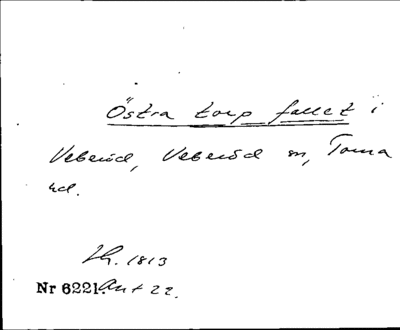 Östra torp fallet i
Veberöd, Veberöd sn, Torna
hd.
Lh. 1813
Nr 6221. Akt 22.